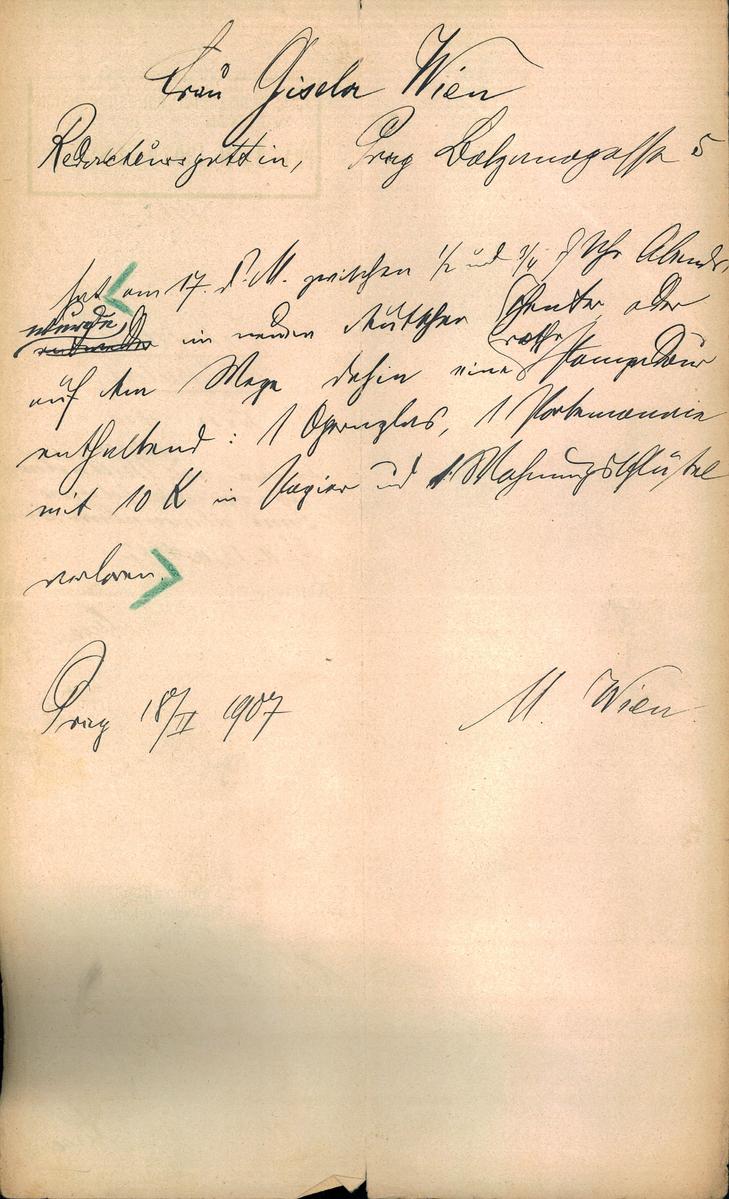 Frau Gisela Wien
Redacteursgattin, Prag Bolzanogasse 5
hat am 17. d. M. zwischen 1/2 und 3/4 7 Uhr Abends,
wurde, entweder im neuen deutschen Theater oder
rothe
auf dem Wege dahin eine Pompadour
enthaltend: 1 Opernglas, 1 Portemonnaie
mit 10 K in Papier und 1 Wohnungsschlüssel
verloren.
Prag 18/II 1907 M. Wien